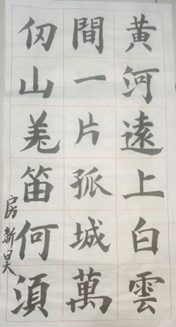 黃河遠上白雲
間一片孤城萬
仞山羌笛何須
房新昊